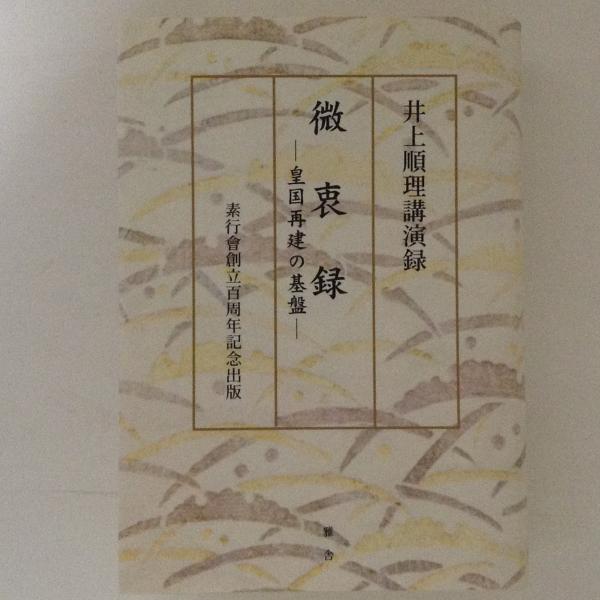 井上順理講演録
微衷録
―皇国再建の基盤―
素行會創立百周年記念出版
雅舎